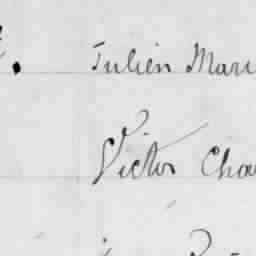 Julien Mari
Victor Cha